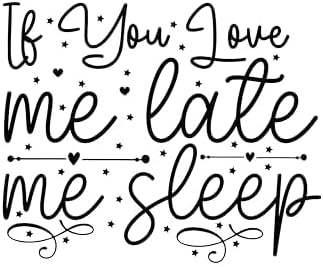 If You Love
me late
me sleep